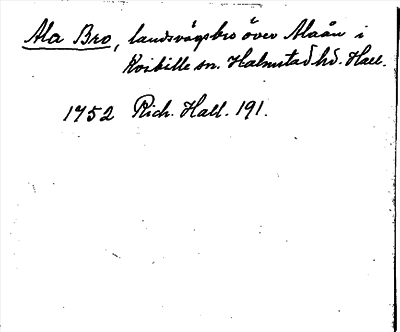 Ala Bro, landsvägsbro över Alaån i
Kvibille sn. Halmstad hd. Hall.
1752 Rich. Hall. 191.